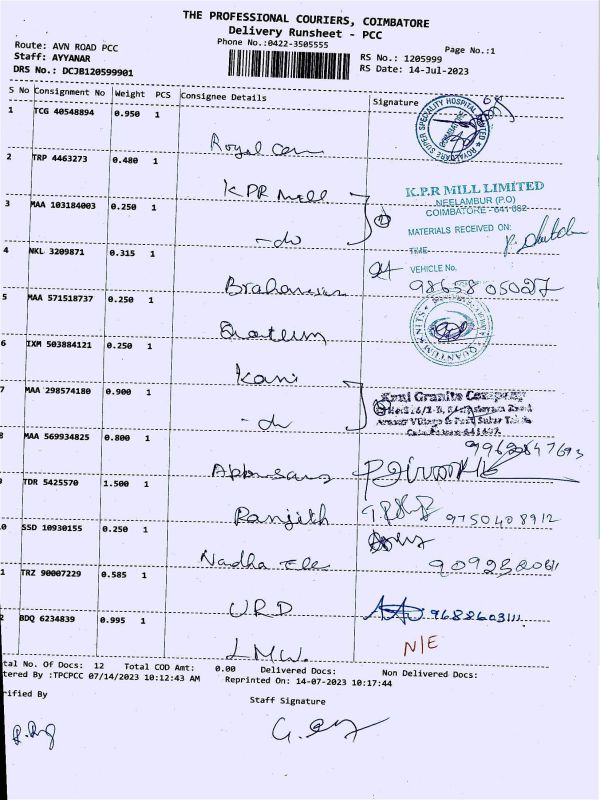 THE PROFESSIONAL COURIERS, COIMBATORE
Delivery Runsheet - PCC
Phone No.:0422-3505555
Page No.:1
Route: AVN ROAD PCC
Staff: AYYANAR
DRS No.: DCJB120599901
RS No.: 1205999
RS Date: 14-Jul-2023
S No Consignment No Weight PCS Consignee Details Signature
1 TCG 40548894 0.950 1 Royal Care
SUPER SPECIALITY HOSPITAL LIMITED
COIMBATORE
2 TRP 4463273 0.480 1 KPR Mill
K.P.R MILL LIMITED
NEELAMBUR (P.O)
COIMBATORE - 641 062
MATERIALS RECEIVED ON:
TIME
VEHICLE No.
3 MAA 103184003 0.250 1 - do
4 NKL 3209871 0.315 1
98658 05027
5 MAA 571518737 0.250 1 Quantum
QUANTUM KNITS
6 IXM 503884121 0.250 1 Kani
7 MAA 298574180 0.900 1 - do
Granite Company
8 MAA 569934825 0.800 1
TDR 5425570 1.500 1 Ranjith
9750408912
0 SSD 10930155 0.250 1 Nadha Ele
1 TRZ 90007229 0.585 1 URD
9688603111
2 BDQ 6234839 0.995 1 LMW.
N/E
tal No. Of Docs: 12 Total COD Amt: 0.00 Delivered Docs: Non Delivered Docs:
tered By :TPCPCC 07/14/2023 10:12:43 AM Reprinted On: 14-07-2023 10:17:44
rified By
Staff Signature